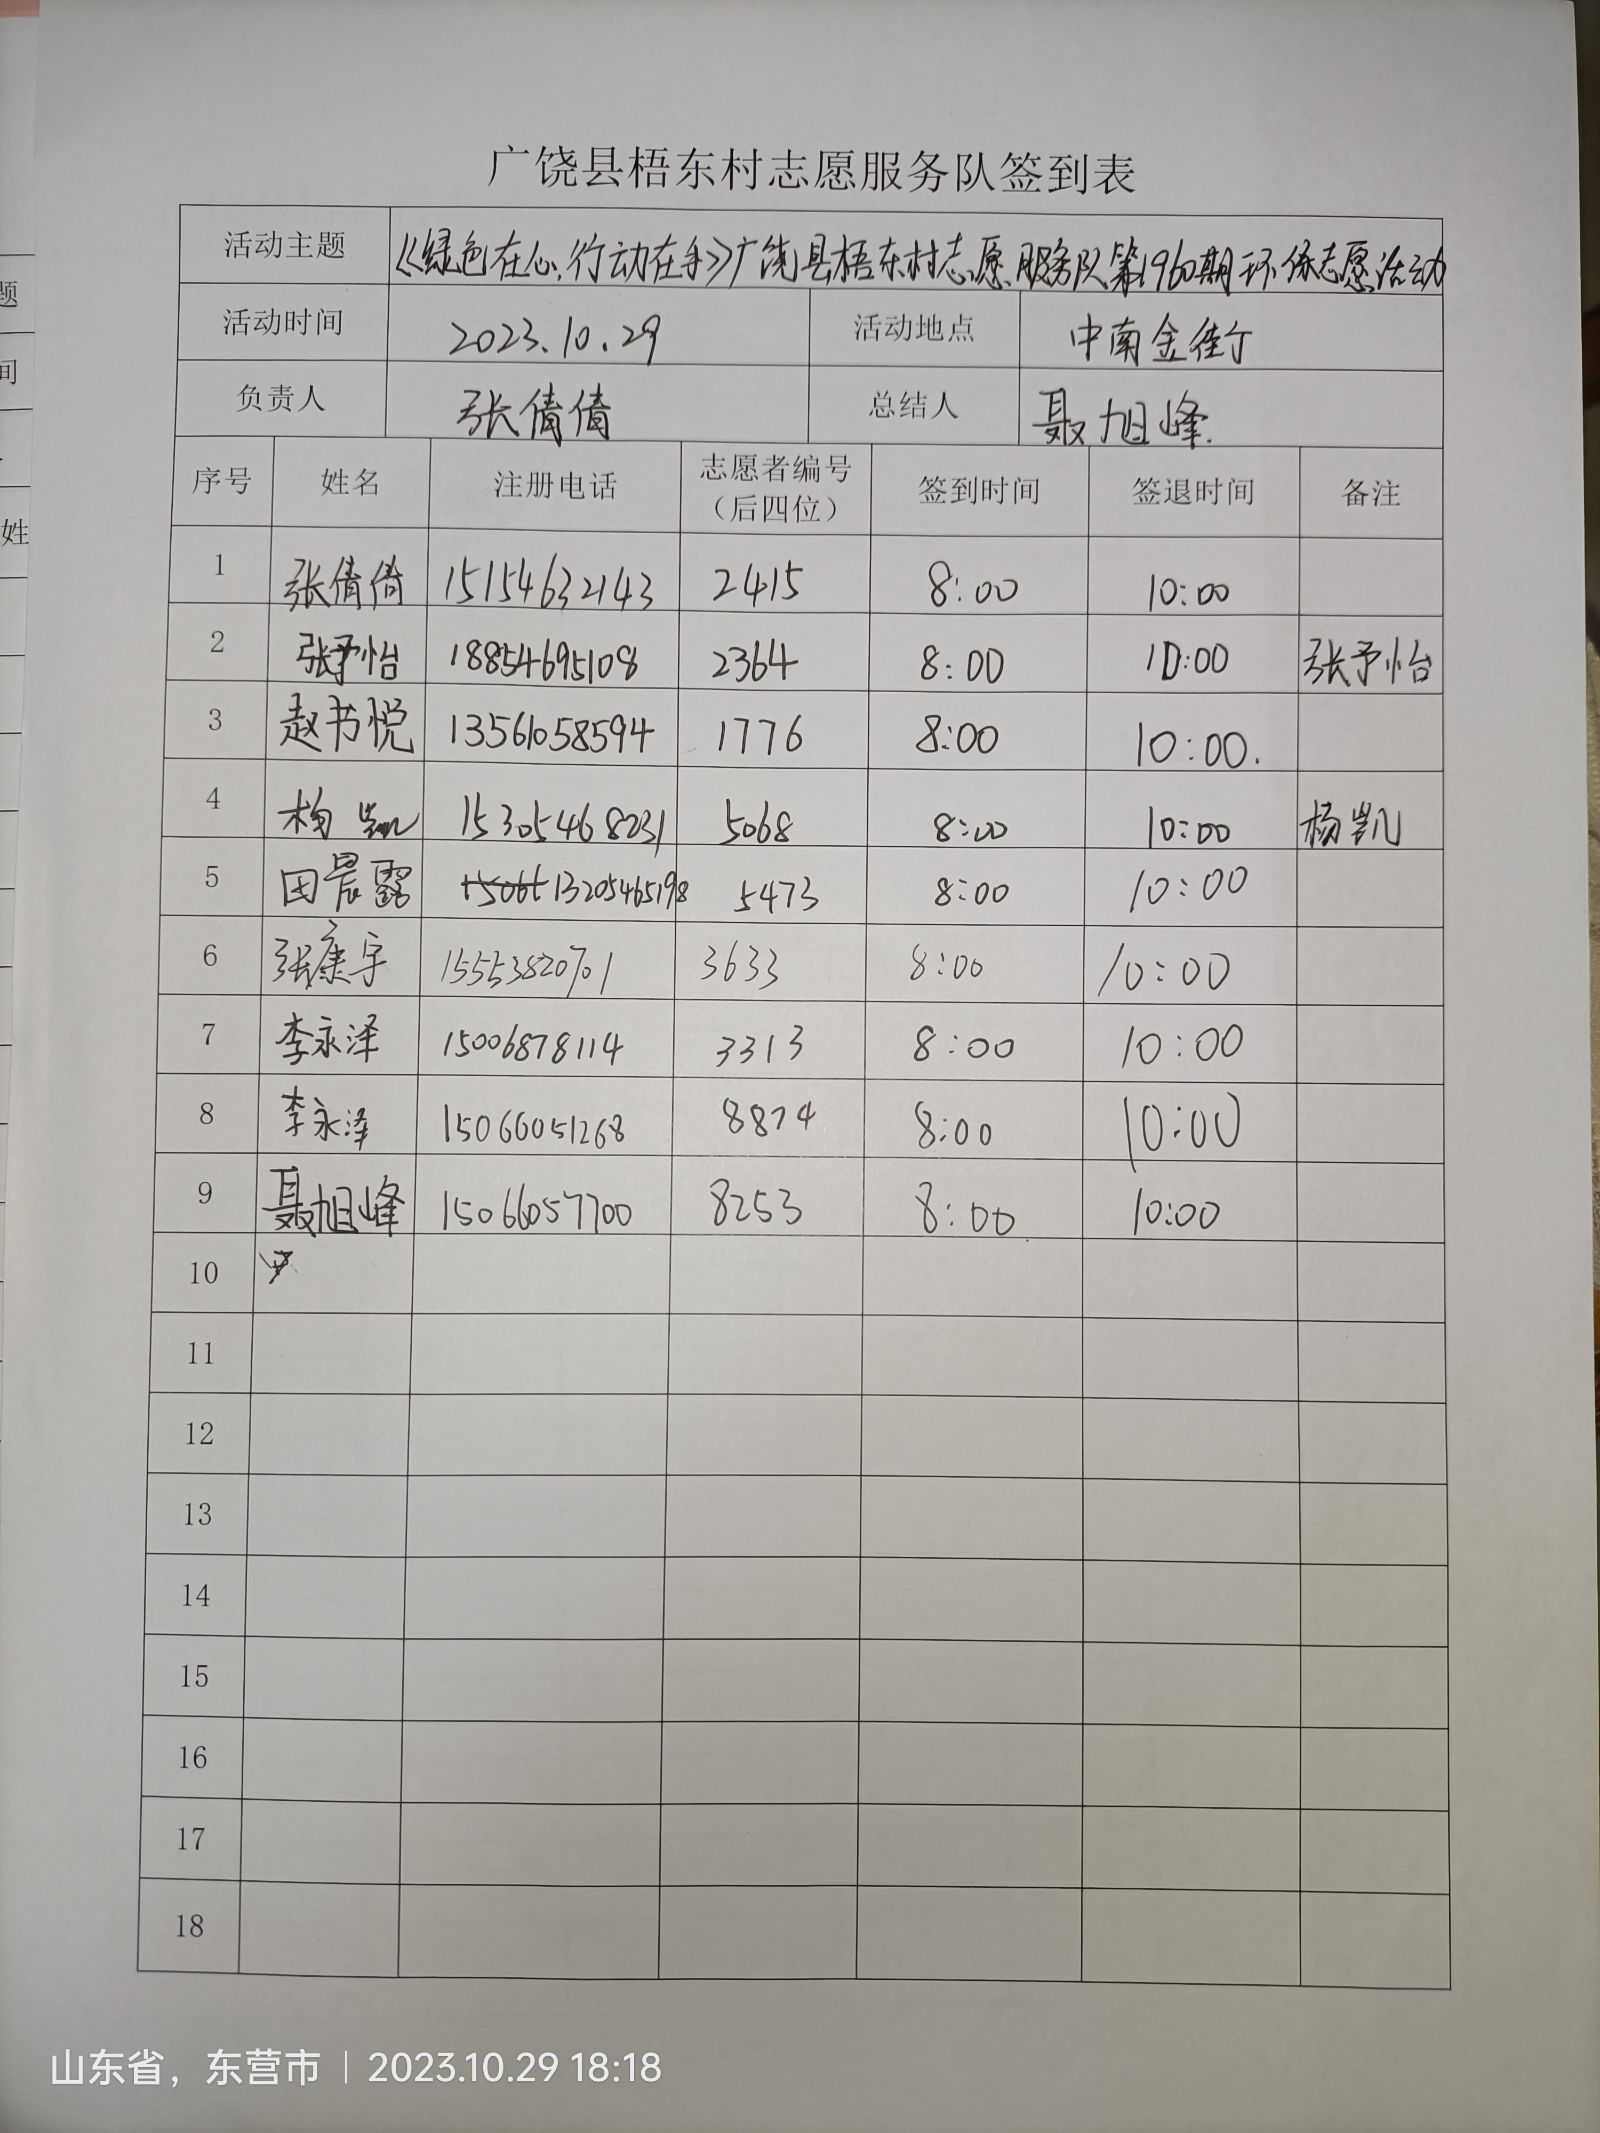 广饶县梧东村志愿服务队签到表
活动主题 《绿色在心,行动在手》广饶县梧东村志愿服务队第1960期环保志愿活动
活动时间 2023.10.29 活动地点 中南金街
负责人 张倩倩 总结人 聂旭峰
序号 姓名 注册电话 志愿者编号（后四位） 签到时间 签退时间 备注
1 张倩倩 15154632143 2415 8:00 10:00
2 张予怡 18854695108 2364 8:00 10:00 张予怡
3 赵书悦 13561058594 1776 8:00 10:00.
4 杨凯 15305468231 5068 8:00 10:00 杨凯
5 田晨露 13205465198 5473 8:00 10:00
6 张康宇 15553820701 3633 8:00 10:00
7 李永泽 15006878114 3313 8:00 10:00
8 李永泽 15066051268 8874 8:00 10:00
9 聂旭峰 15066057700 8253 8:00 10:00
10
11
12
13
14
15
16
17
18
题
间
姓
山东省，东营市｜2023.10.29 18:18